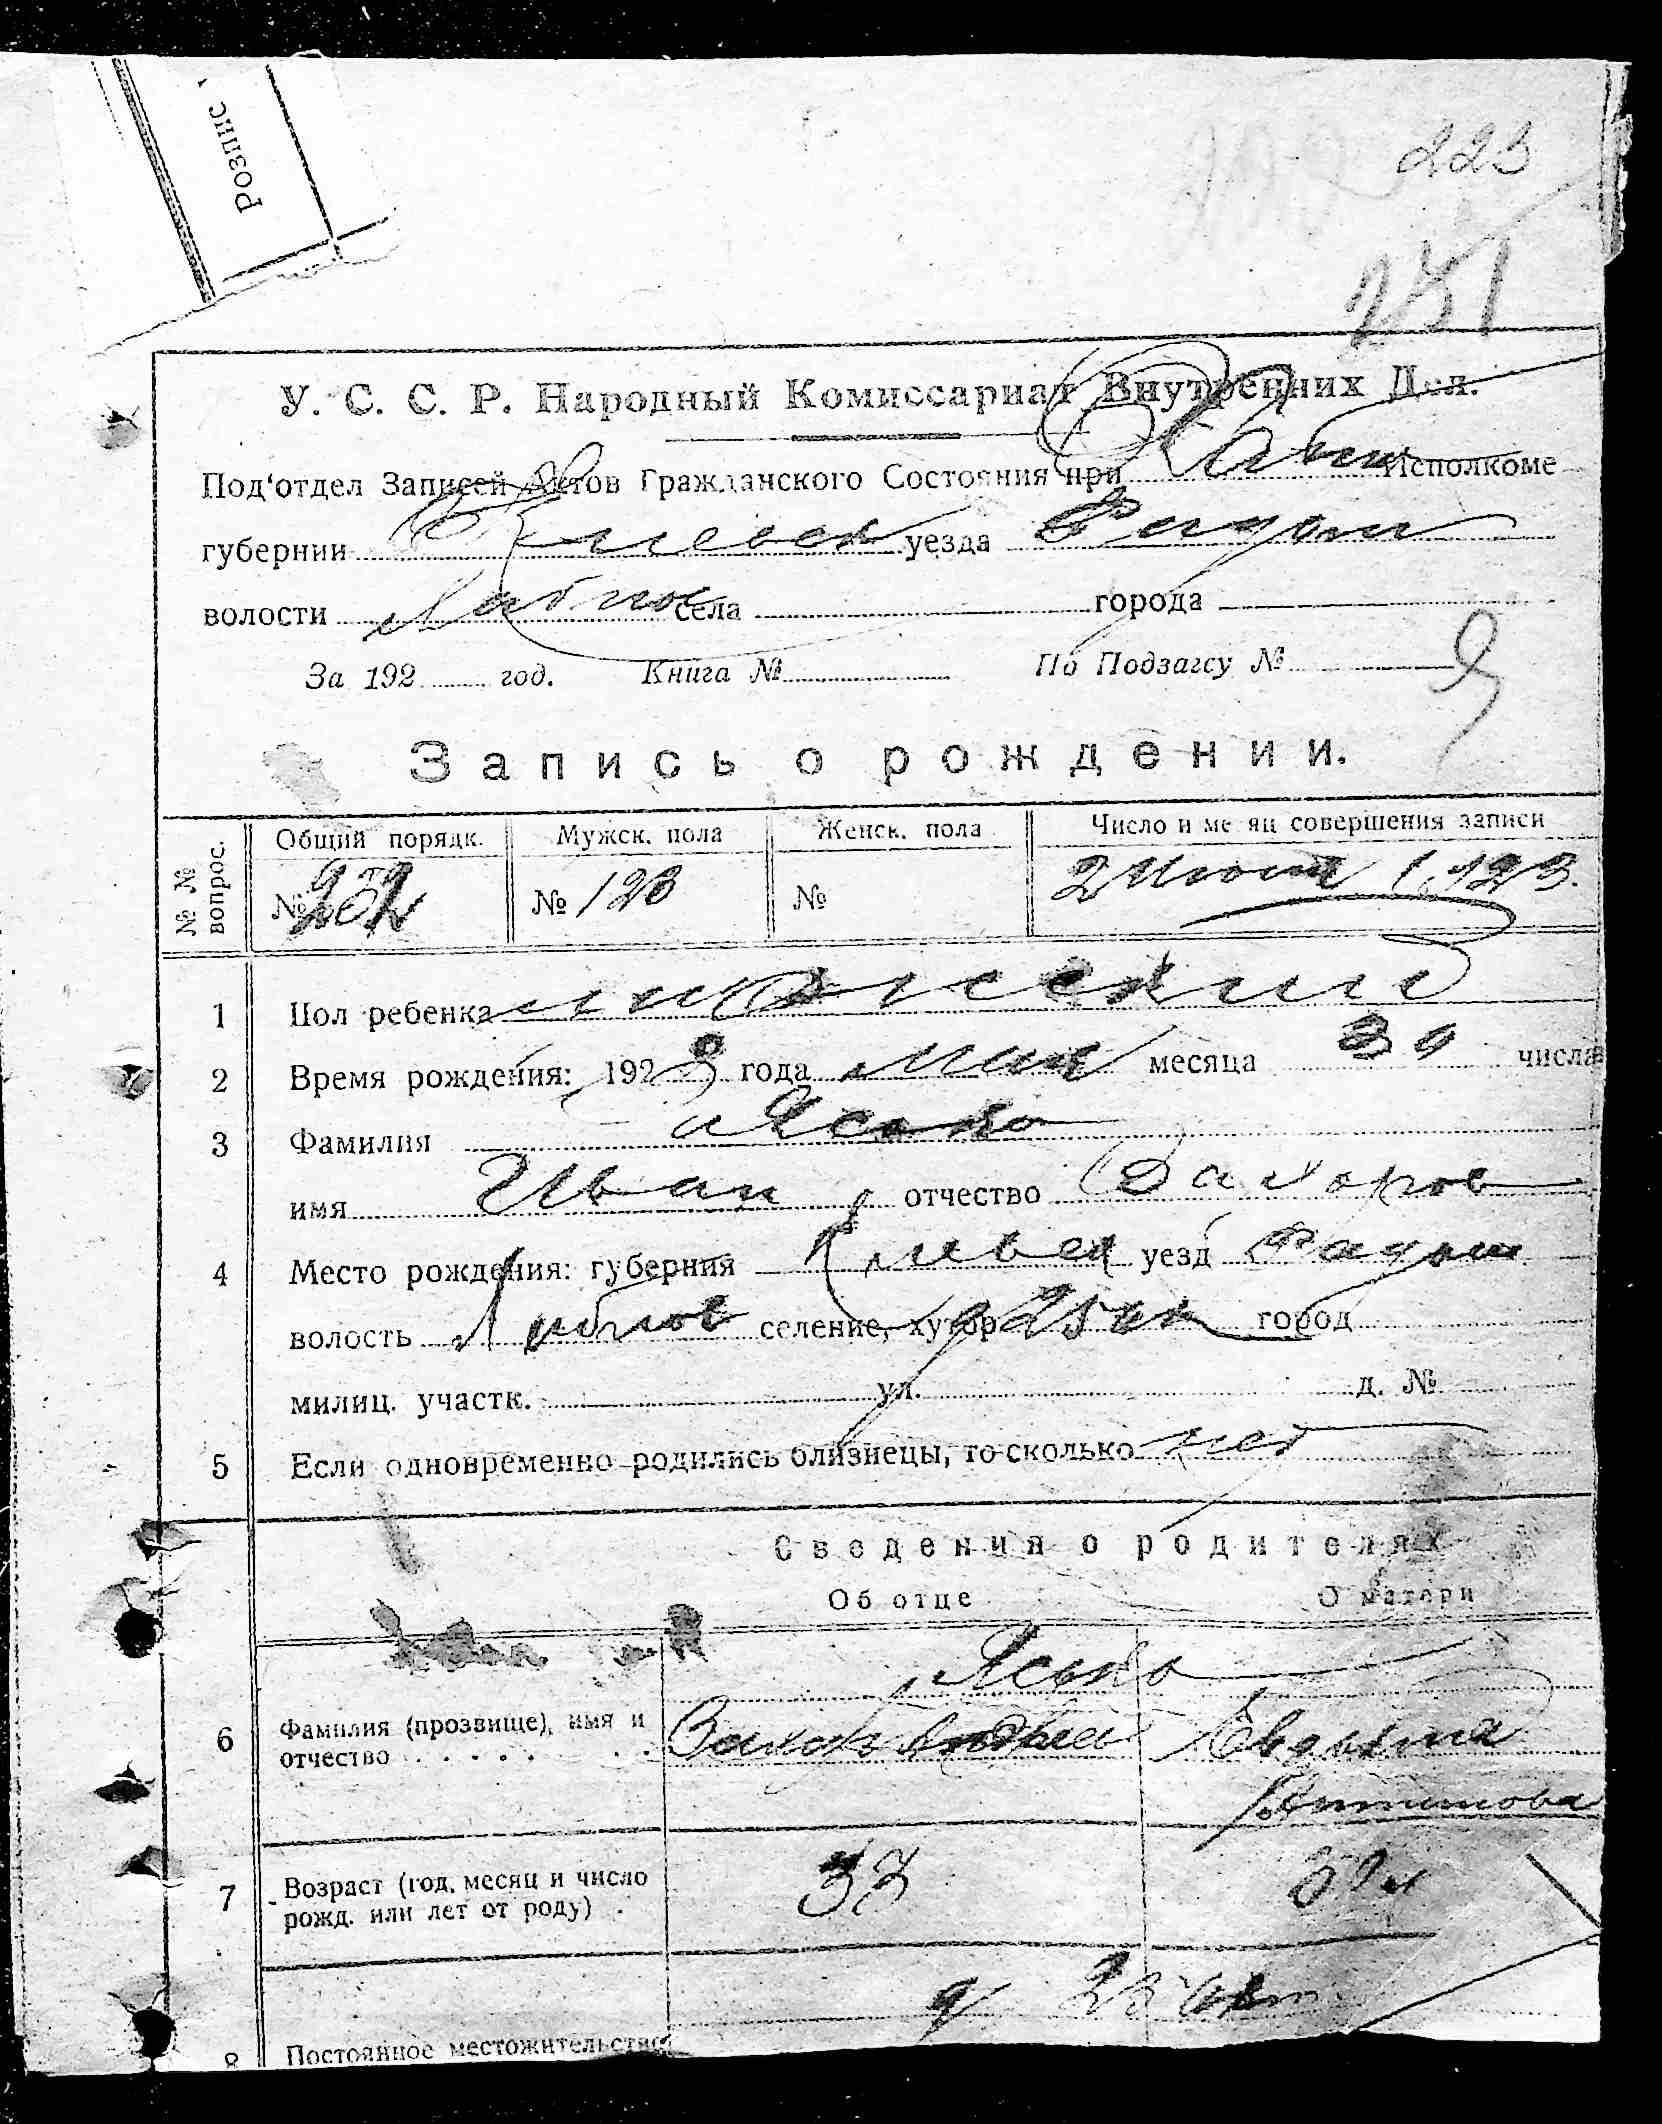 Розпис
223
251
У. С. С. Р. Народный Комиссариат Внутренних Дел.
Под‘отдел Записей Актов Гражданского Состояния при Исполкоме
губернии Киевск уезда Радом
волости села города
За 192 год. Книга № По Подзагсу №
Запись о рождении.
№ № вопрос. Общий порядк. Мужск. пола Женск. пола Число и месяц совершения записи
№ 252 № 123 № 2 Июня 1923.
1 Пол ребенка мужеский
2 Время рождения: 1923 года мая месяца 30 числа
3 Фамилия Ясько
имя Иван отчество Захаров
4 Место рождения: губерния Киевск уезд Радом
волость селение, хутор город
милиц. участк. ул. д. №
5 Если одновременно родились близнецы, то сколько нет
Сведения о родителях
Об отце О матери
Ясько
6 Фамилия (прозвище), имя и Захар Андреев Евдокия
отчество
Антонова
7 Возраст (год, месяц и число 37
рожд. или лет от роду)
8 Постоянное местожительство